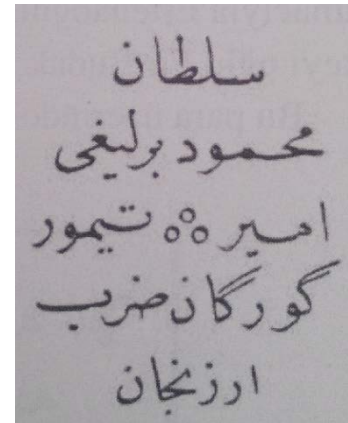 سلطان
محمود یرلیغی
امیر تیمور
گورگان ضرب
ارزنجان